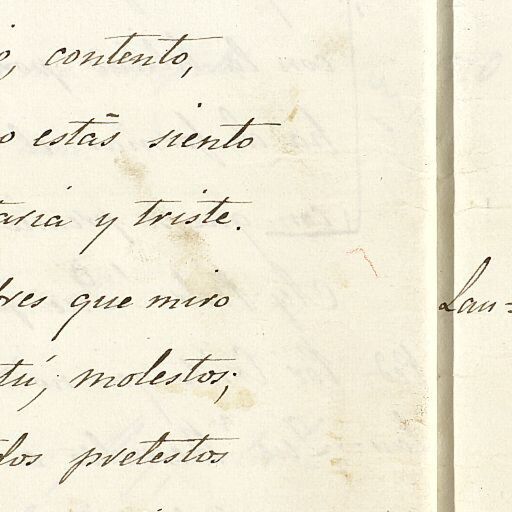 o, contento,
o estás siento
taria y triste.
bres que miro
tú, molestos;
dos pretestos
Lau=